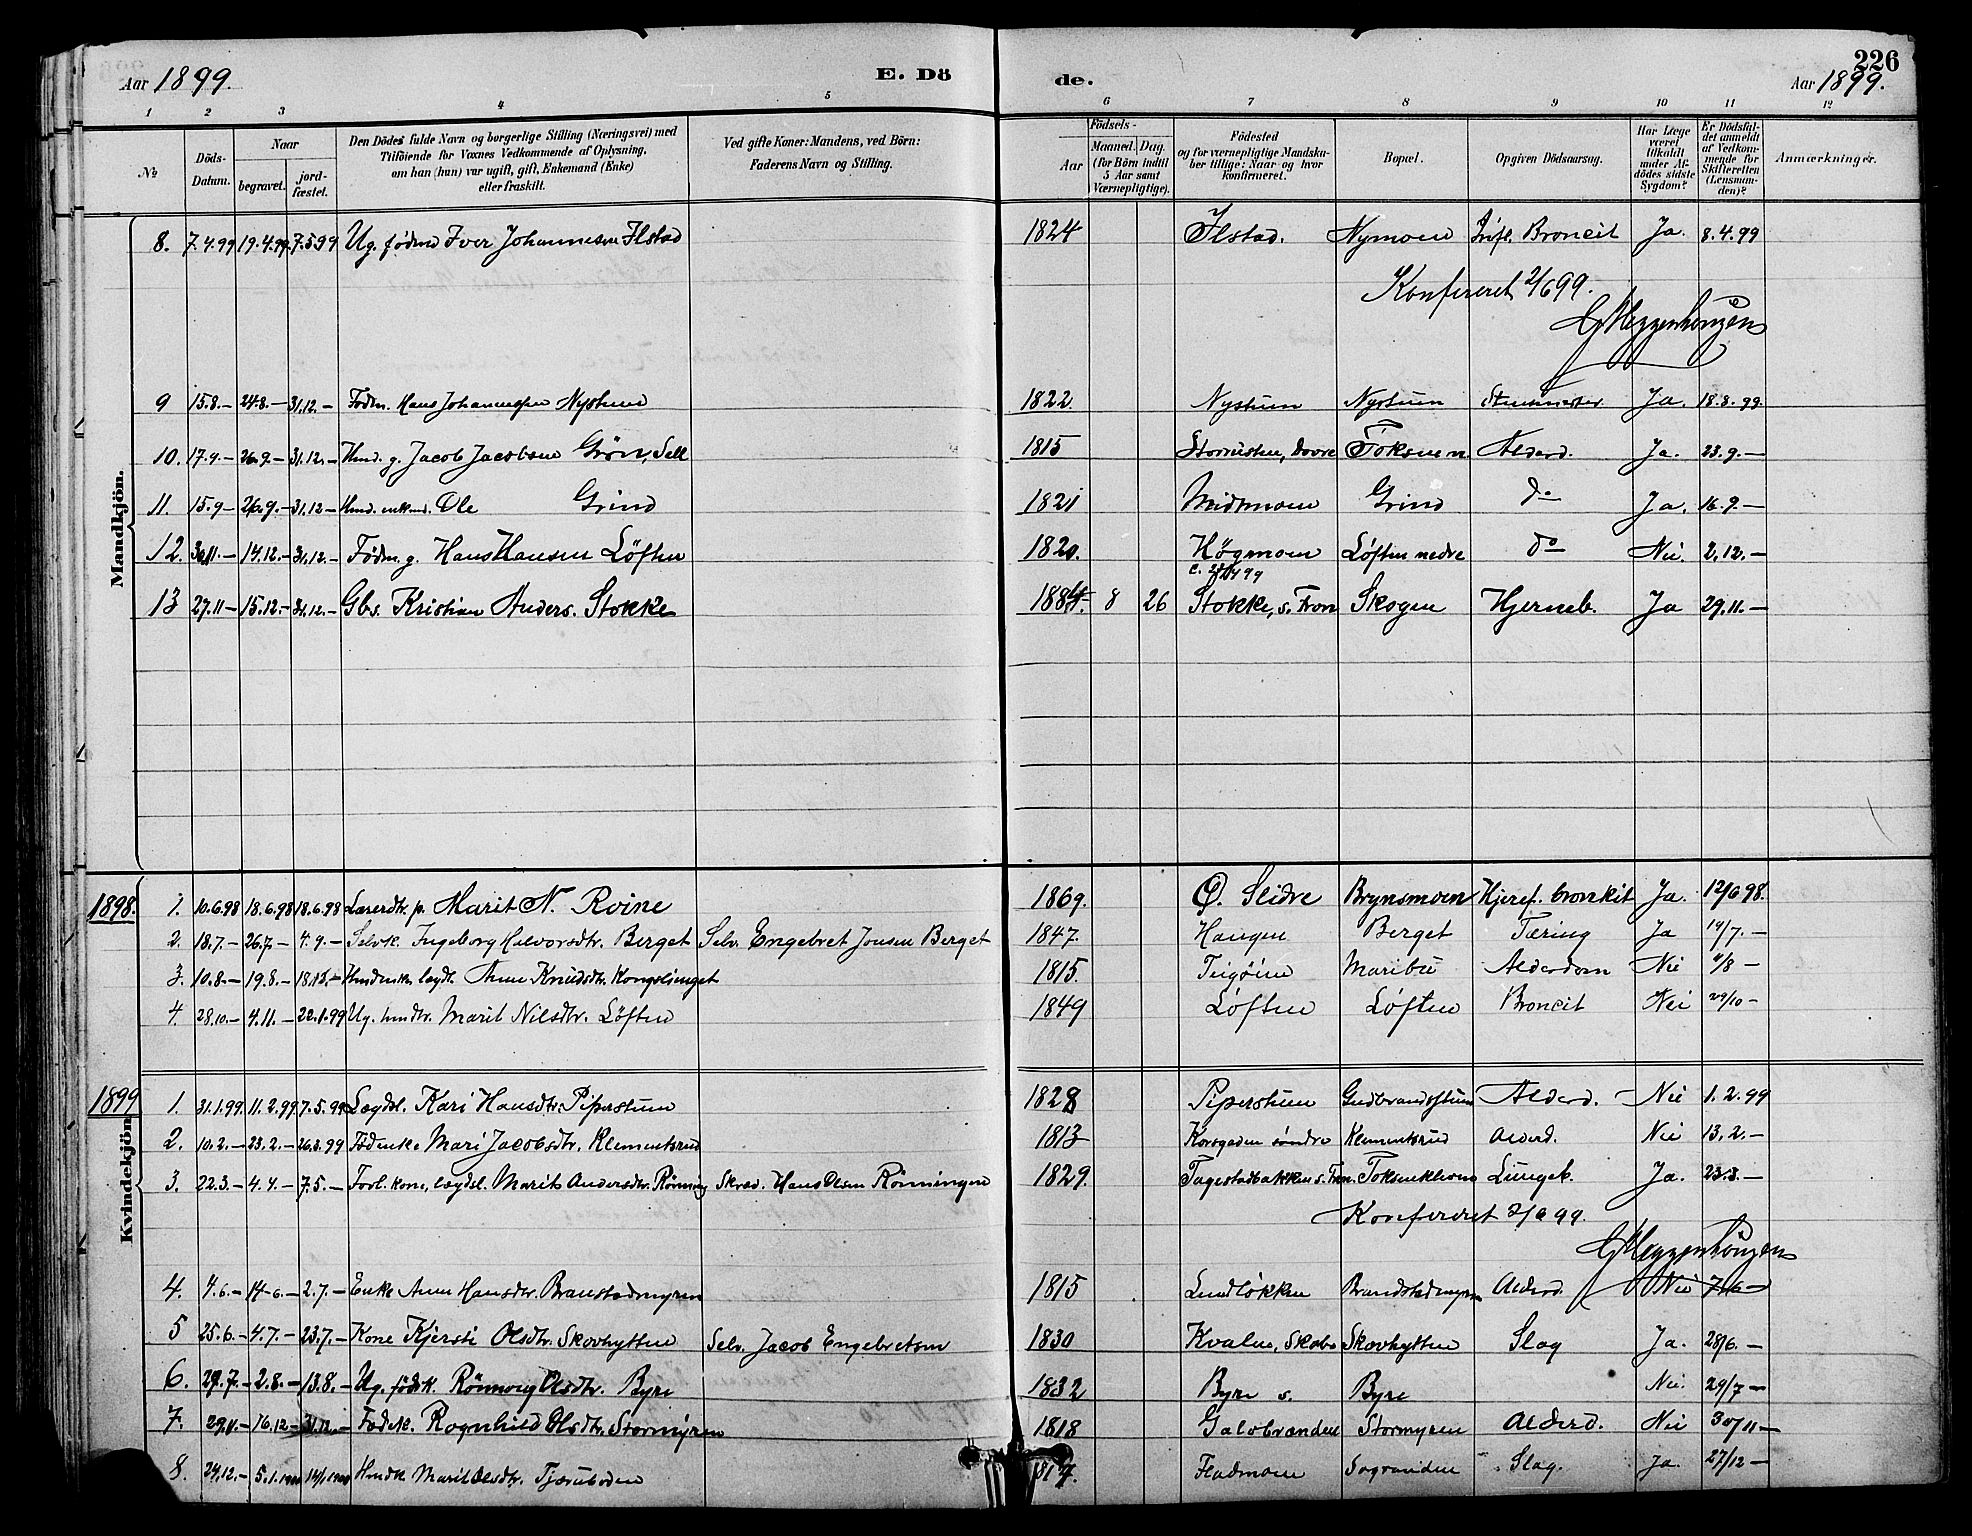 226
Aar 1899. E. Dö de. Aar 1899.
1 2 3 4 5 6 7 8 9 10 11 12
№ Döds-Datum. Naar begravet. jord-fæstet. Den Dödes fulde Navn og borgerlige Stilling (Næringsvei) med Tilföiende for Voxnes Vedkommende af Oplysning, om han (hun) var ugift, gift, Enkemand (Enke) eller fraskilt. Ved gifte Koner: Mandens, ved Börn: Faderens Navn og Stilling. Födsels- Aar Maaned. Dag. (for Börn indtil 5 Aar samt Værnepligtige). Födested og for værnepligtige Mandskaber tillige: Naar og hvor konfirmeret. Bopæl. Opgiven Dödsaarsag. Har Læge været tilkaldt under Afdödes sidste Sygdom? Er Dödsfaldet anmeldt af Vedkommende for Skifteretten (Lensmanden)? Anmærkninger.
Mandkjön.
8. 7.4.99 19.4.99 7.5.99 Ug. fødmd Iver Johannesen Ilstad 1824 Ilstad. Nymoen Infl. Broncit Ja. 8.4.99
Konfereret 2/6 99.
9 15.8.— 24.8.— 31.12.— Fødm. Hans Johannesen Nystuen 1822. Nystuen Nystuen Ja. 18.8.99.
10. 17.9— 26.9.— 31.12.— Hmd. g. Jacob Jacobsen Grøn, Sell 1815 Dovre Toksuen Alderd. Ja. 23.9.—
11. 15.9— 26.9.— 31.12— Hmd. enkmd. Ole Grind 1821 Midtmoen Grind do Ja. 16.9.—
12. 30.11.— 14.12.— 31.12.— Fødm. g. Hans Hansen Löften 1820. Høgmoen Löften nedre do Nei 2.12.—
13 27.11— 15.12.— 31.12.— Gbs. Kristian Anders. Stokke 1884. 8 26 Stokke, s. Fron Skogen Hjerneb. Ja 29.11.—
1898.
1. 10.6.98 18.6.98 18.6.98 Læserdtr. p. Marit N. Roine 1869. Ø. Slidre Brynsmoen Hjeref. bronkit Ja. 12/6 98.
2. 18.7.— 26.7.— 4.9.— Selvk. Ingeborg Halvorsdtr. Berget Selv. Engebret Jonsen Berget 1847. Haugen Berget Tæring Ja 19/7.—
3. 10.8.— 19.8.— 18.12.— Hmdenk. lægdl. Anne Knudsdtr. Kongsljenget 1815. Maribu Alderdom Nei
4. 28.10.— 4.11.— 22.1.99 Ug. hmdtr. Marit Nilsdtr. Löften 1849 Löften Löften Broncit Nei 29/10—
1899
Kvindekjön.
1. 31.1.99. 11.2.99. 7.5.99 Lægdsl. Kari Hansdtr. Piperstuen 1828 Piperstuen Gudbrandstuen Alderd. Nei 1.2.99
2. 10.2.— 23.2.— 26.3.99 Födenke Mari Jacobsdtr. Klementsrud 1813 Korsgaden söndre Klementsrud Alderd. Nei 13.2.—
3. 22.3.— 4.4.— 7.5.— Forl. kone, lægdsl. Marit Andersdtr. Rønning Skræd. Hans Olsen Rönningen 1829. Tagestadbakken s. Fron. Lungeb. Ja. 23.3.—
Konfereret 2/6 99.
4. 4.6.— 14.6.— 2.7.— Enke Anne Hansdtr. Branstadmyren 1815 Lundløkken Brandstadmyren Alderd. Nei 7.6—
5 25.6.— 4.7.— 23.7.— Kone Kjersti Olsdtr. Skovhytten Selv. Jacob Engebretsen 1830 Skabo Skovhytten Slag Ja. 28/6.—
6. 27.7.— 2.8.— 13.8.— Ug. födk. Rønnoug Olsdtr. Byre 1832 Byre s. Byre Nei. 29/7—
7. 29.11.— 16.12— 31.12.— Födek. Rognhild Olsdtr. Stormyren 1818 Stormyren Alderd. Nei 30/11—
8. 24.12.— 5.1.1900 14/1 1900 Hmdk Marit Olsdtr. Tjæruboden 1817. Fladmoen Sogranden Slag. Ja. 27/12—